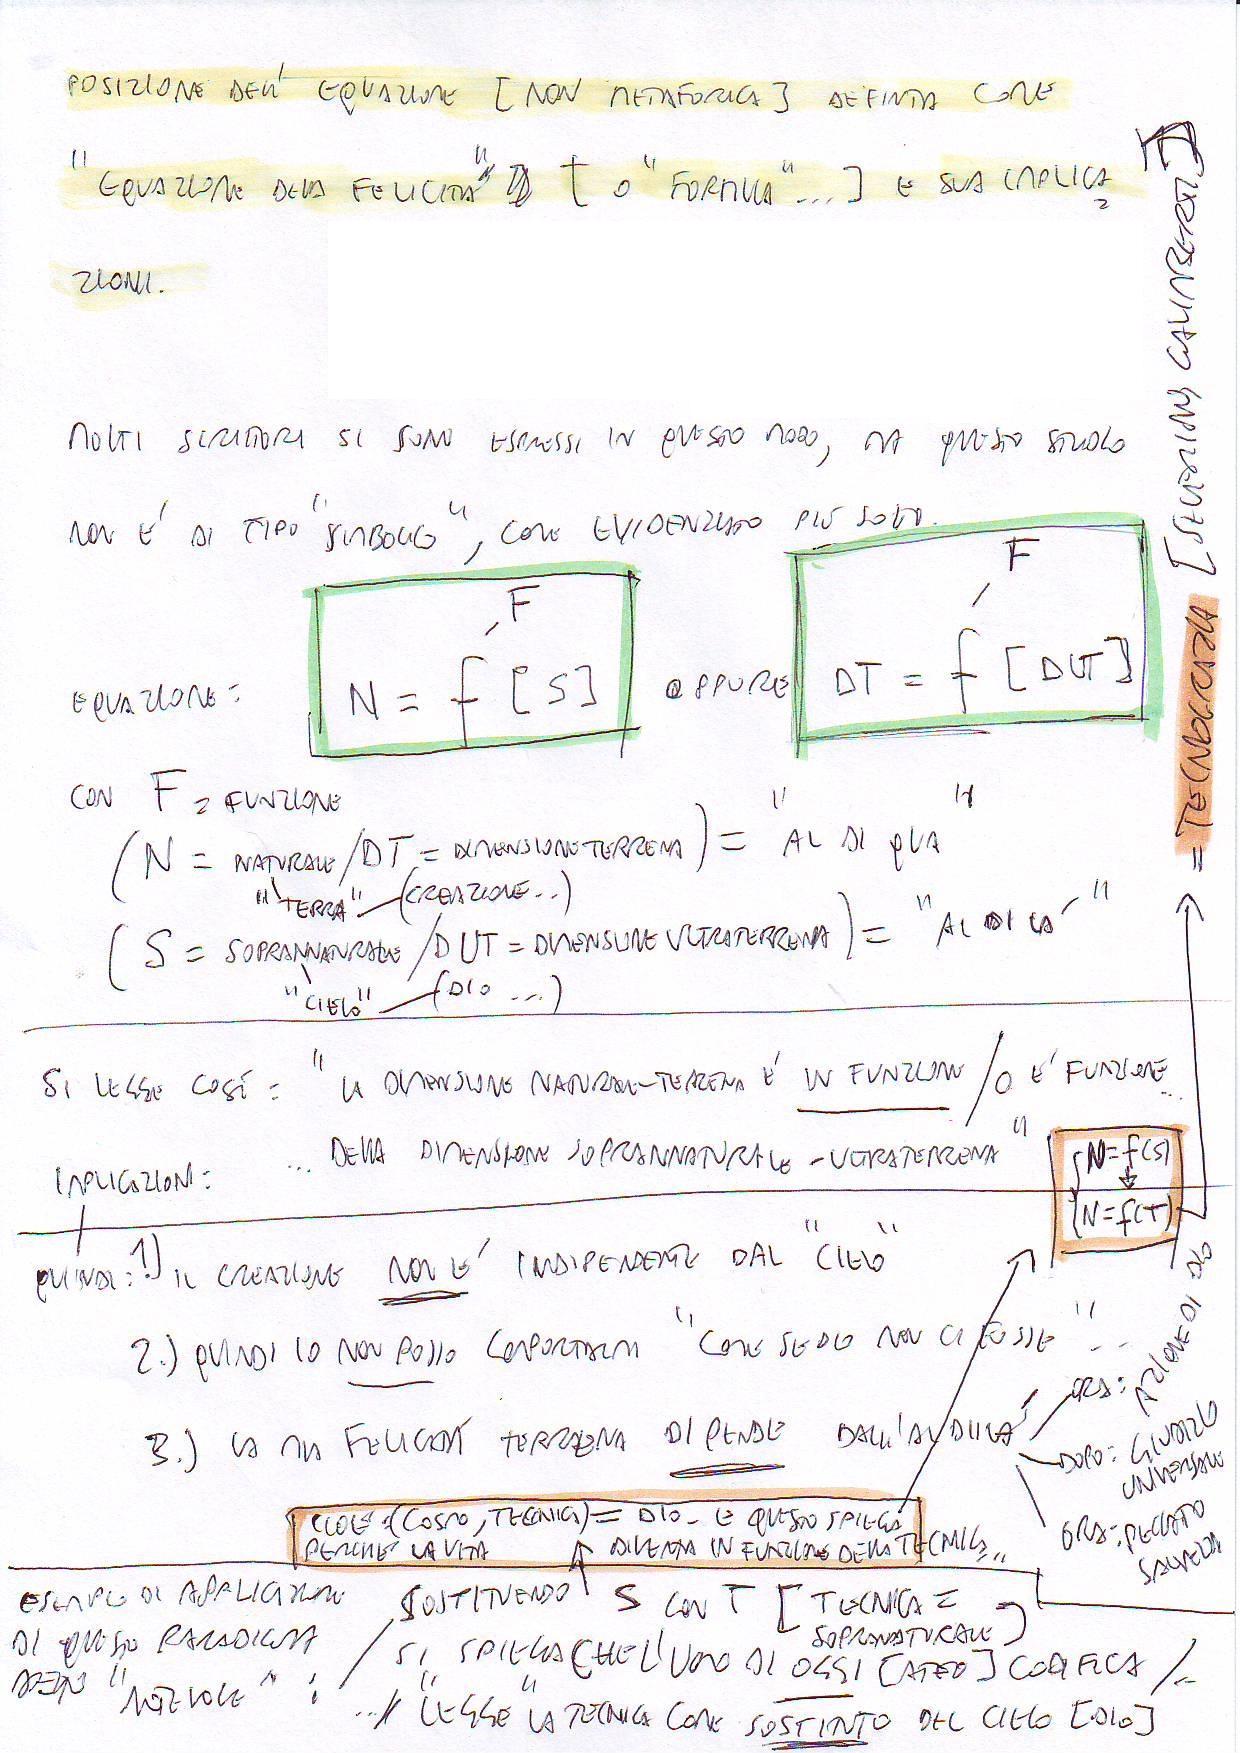 POSIZIONE DELL' EQUAZIONE [NON METAFORICA] DEFINITA COME
"EQUAZIONE DELLA FELICITA'" [O "FORMULA"...] E SUA IMPLICA
ZIONI.
MOLTI SCRITTORI SI SONO ESPRESSI IN QUESTO MODO, MA QUESTO STUDIO
NON E' DI TIPO "SIMBOLICO", COME EVIDENZIATO PIÙ SOTTO.
F
F
EQUAZIONE: N = f [S] OPPURE DT = f [DUT]
CON F = FUNZIONE
(N = NATURALE/DT = DIMENSIONE TERRENA) = "AL DI QUA"
"TERRA" (CREAZIONE...)
(S = SOPRANNATURALE/DUT = DIMENSIONE ULTRATERRENA) = "AL DI LA'"
"CIELO" (DIO ...)
SI LEGGE COSÍ: "LA DIMENSIONE NATURALE-TERRENA E' IN FUNZIONE / O E' FUNZIONE...
... DELLA DIMENSIONE SOPRANNATURALE-ULTRATERRENA"
IMPLICAZIONI:
N=f(S)
N=f(T)
= TECNOCRAZIA [SEVERINO, GALIMBERTI]
QUINDI: 1) IL CREAZIONE NON E' INDIPENDENTE DAL "CIELO"
2.) QUINDI IO NON POSSO COMPORTARMI "COME SE DIO NON CI FOSSE"...
3.) LA MIA FELICITÁ TERRENA DIPENDE DALL'ALDILA'
ORA: AZIONE DI DIO
DOPO: GIUDIZIO UNIVERSALE
ORA: PECCATO
CIOE': (COSMO, TECNICA) = DIO - E QUESTO SPIEGA
PERCHE' LA VITA DIVENTA IN FUNZIONE DELLA TECNICA...
ESEMPIO DI APPLICAZIONE
DI QUESTO PARADIGMA
"NOTEVOLE":
SOSTITUENDO S CON T [TECNICA =
SOPRANATURALE]
SI SPIEGA CHE L'UOMO DI OGGI [ATEO] CODIFICA /..
..// "LEGGE" LA TECNICA COME SOSTINTO DEL CIELO [DIO]